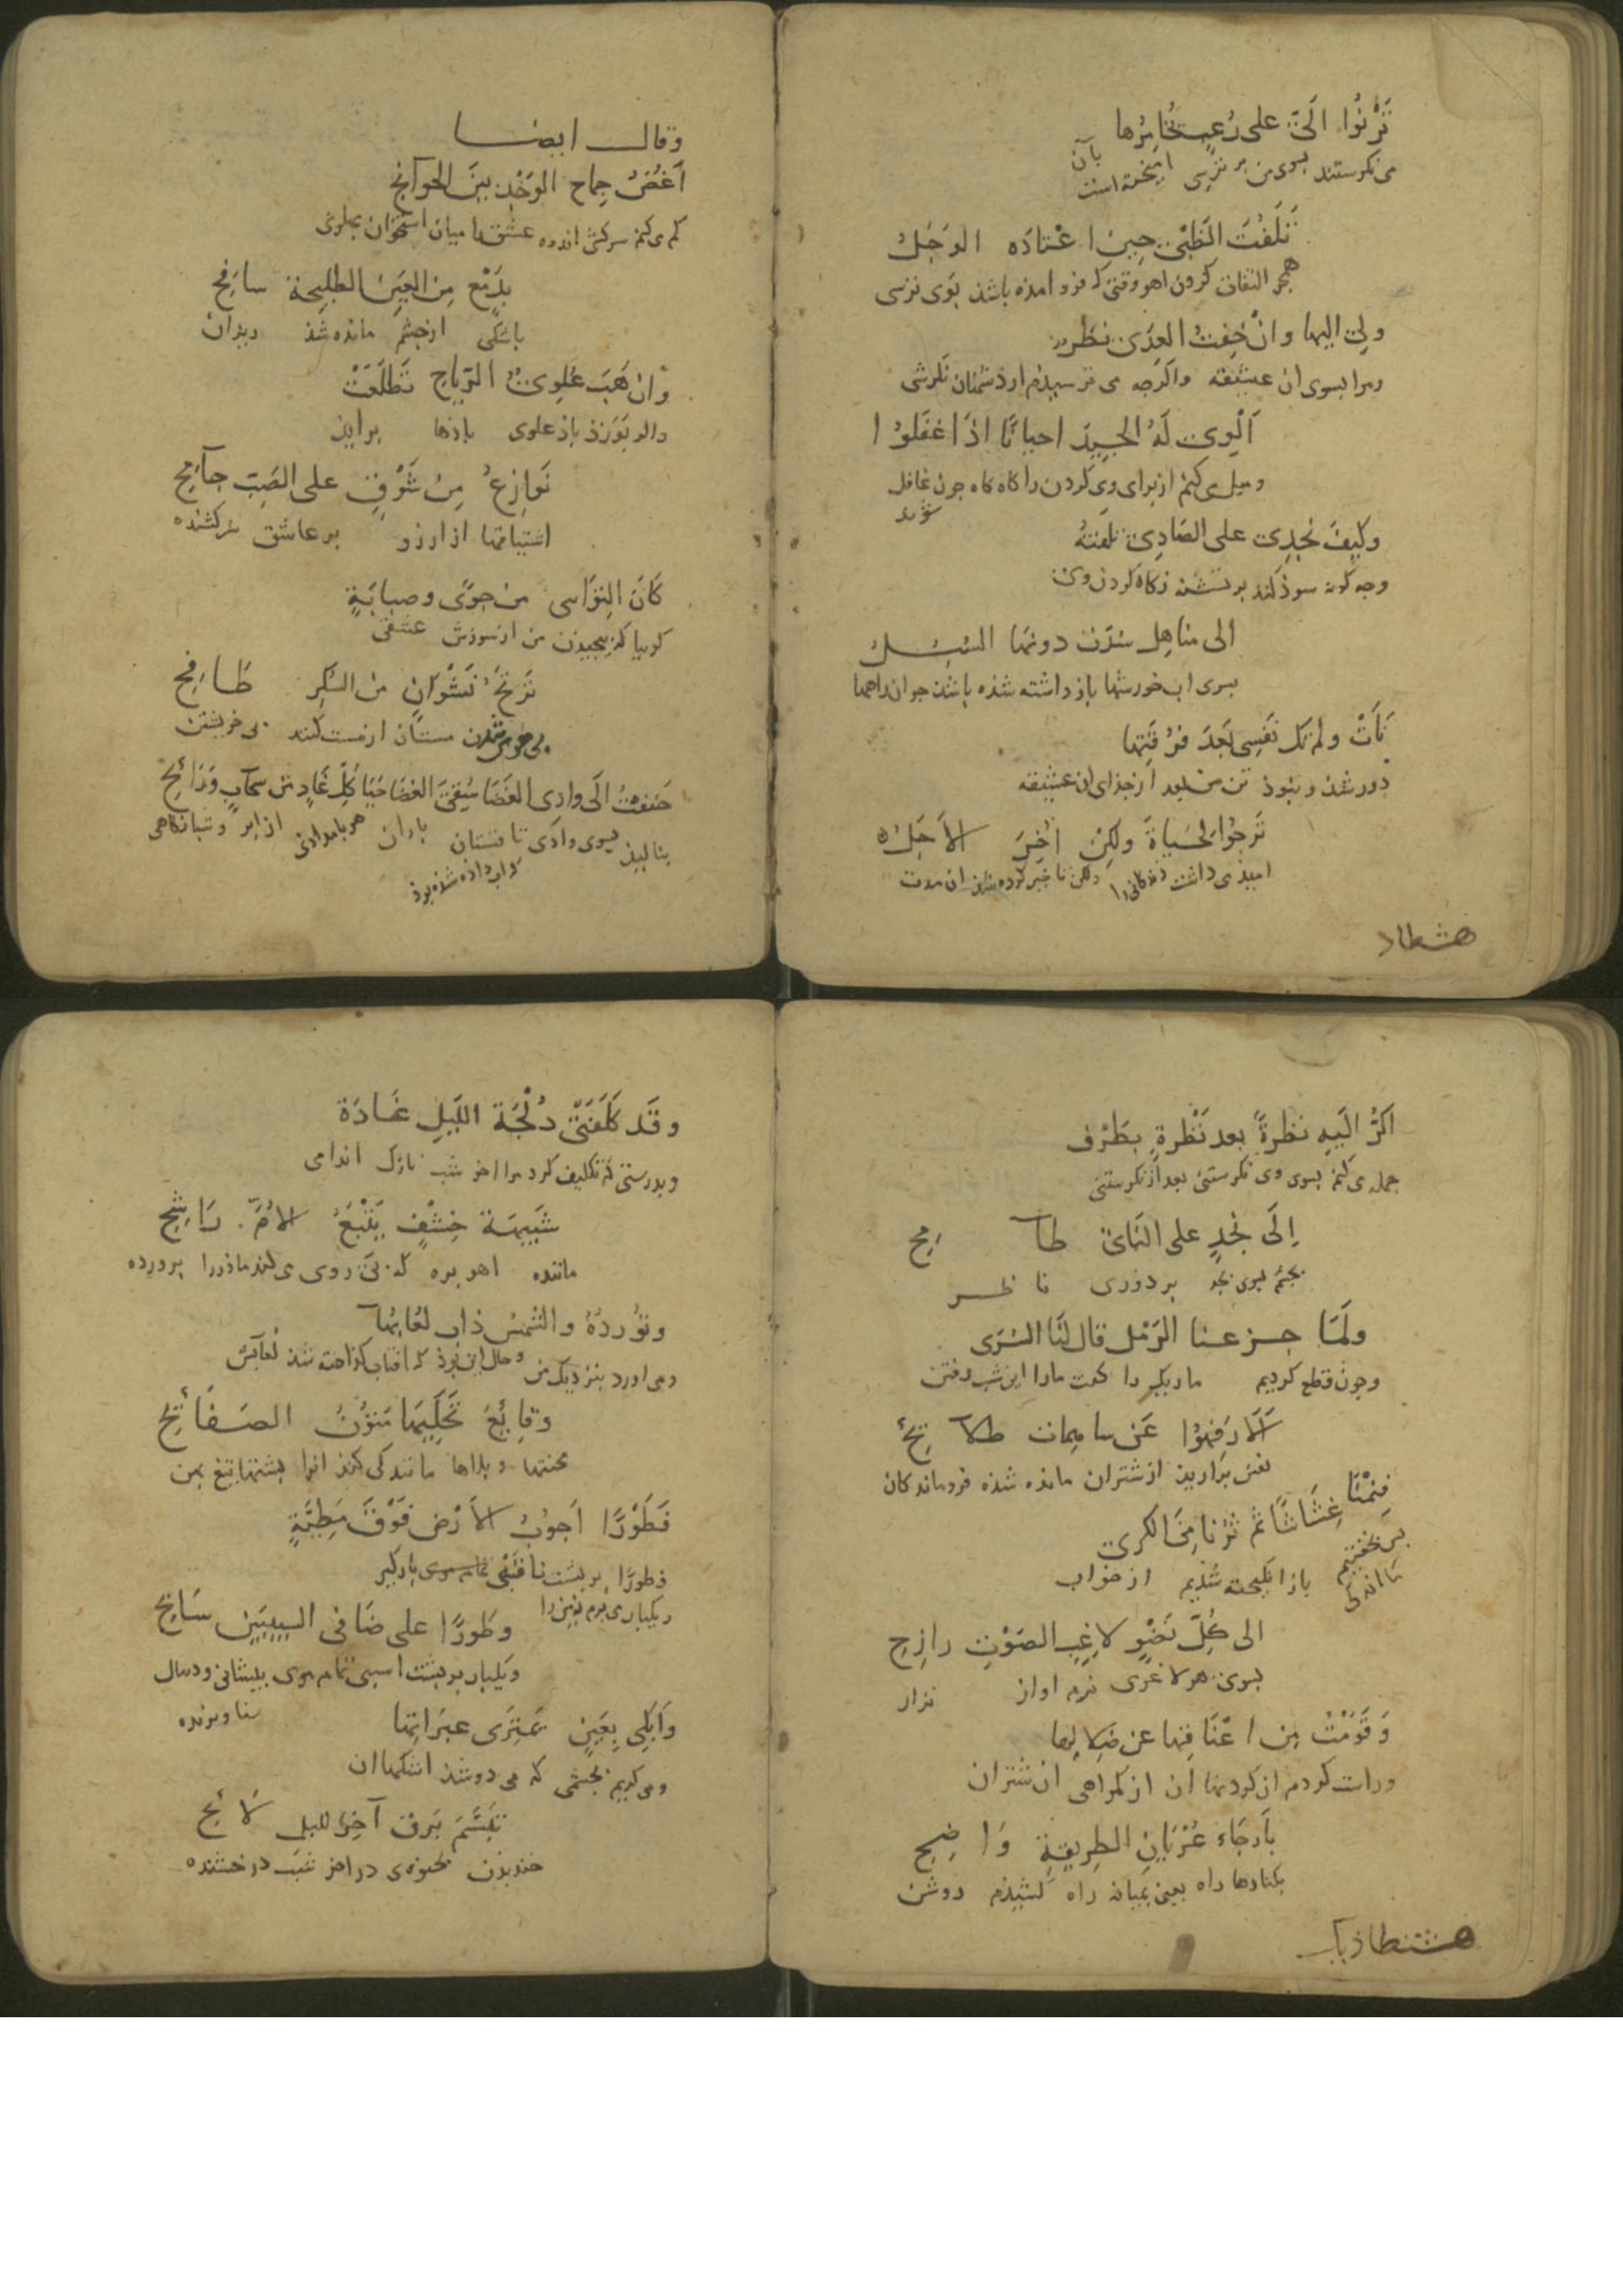 تَرْنُوا الَىَّ على رُعبٍ يُخَامِرُها
می نکرستند بسوی من بر ترسی امیخته است بآن
تَلَفُّتَ الظَبْیِ حِینَ اعْتادَه الوَجَلُ
همچو التفات کردن اهو وقتی که فرو امذه باشذ بوی ترسی
ولِی الیها وانْ خِفتُ العِدَی نظرٌ
ومرا بسوی ان عشیقه واکرچه می ترسیدم از دشمنان نکرشی
اَلْوِی لَهُ الجِیدَ احیانًا اذَا غفَلوُا
ومیل می کنم از برای وی کردن را کاه کاه چون غافل
شوند
وکیفَ یُجدِی علی الصَادِی تلفتهُ
وچه کونه سوذ کند بر تشنه نکاه کردن وی
الی مناهِل سُدَت دونها السُبُل
بسوی اب خورشها باز داشته شذه باشذ جوان راهها
نَأَتْ ولم تکُ نَفسِی بَعدَ فُرْقَتِها
دور شذ و نبوذ تن من بعد از جذای ان عشیقه
تَرجُوا الحَیاةَ ولکِنْ اُخِرَ الاَجَلُ
امیذ می داشت زندکانی را ولکن تاخیر کرده شذ ان مدت
هشطاد
وقال ایضا
اَغُضُّ جِماح الوَجْدِ بینَ الجوآنِحِ
کم می کنم سرکش اندوه عشق را میان استخوان بهلوی
بِدَمْعٍ مِن العَینِ الطلِیحة سافِحِ
باشکی از چشم مانده شذ ریزان
وان هَبَ عُلوِیُّ الرِیاحِ تَطَلَعَتْ
واکر بَوَزَذ باذ علوی باذها برایذ
نَوازِعُ مِن شَوْقٍ علی الصَبِ جآمِحِ
اشتیاقها از ارزو بر عاشق سرکشنده
کَاَنَ التِوَآیی من جوًی وصبابَةٍ
کوییا که بیچیذن من از سوزش عشقی
تَرنُحُ نَشْوَانٍ من السُکر طَافِحِ
بی هوش شدن مستان از مست کنند بی خویشتن
حَننتُ الَی وادِی الغَضَا سُقِیَ الغضَا حَیَا کُلِّ غَادٍ من سحآبٍ وَرَائحِ
بنالیذ بسوی وادی تاقستان باران هر بامدادی از ابر وشبانکاهی
کی اب داده شذه بوذ
اکُرُّ الَیهِ نظرةً بعد نَظْرةٍ بطَرْف
حمله می کنم بسوی وی نکرستنی بعد از نکرستنی
اِلَی نجْدٍ علی النَایِ طآمِحِ
بجشم بسوی نجد بر دوری ناظر
ولَمَا جزعنا الرَمْل قال لنَا السُرَی
وچون قطع کردیم ما ریک را کفت مارا این شب رفتن
اَلاَ رَفِهُوا عَن ساهِمات طلآئحُ
نفس براریذ از شتران مانده شذه فروماندکان
فنِمْنَا غِشَاشًا ثم ثُرْنا مِنَ الکری
بس بخفتیم اندکی باز انکیخته شذیم از خواب
الی کُلِّ نَضْوٍ لاغِبِ الصَوْتِ رازِحِ
بسوی هر لاغری نرم اواز نزار
وَقَومْتُ مِن اعْنَاقِها عن ضِلالِها
وراست کردم از کردنها ان از کمراهی ان شتران
بأَرجَاء عُرْیَانِ الطرِیقةِ وَاضِحِ
بکنارها راه یعنی بمیانه راه کشیذم روشن
هشطاذیک
وقَد کَلَّفَتْنی دُلْجَةَ اللَیلِ غَادَة
وبدرستی که تکلیف کرد مرا اخر شب نازک اندامی
شَبیهَة خِشْفٍ یَتْبَعُ الاُمَّ رَاشِحِ
ماننده اهو بره که بی روی می کند ماذر را برورده
ونُوْرُدُهُ والشمسُ ذابَ لعُابُها
ومی اورد بنزدیک من وحال این بوذ که افتاب کداخته شذ لعابش
وقایِعَ تَحکِیها مُتوُنُ الصَفَائحِ
محنتها وبلاها مانندکی کنذ انرا بشتها تیغ بهن
فَطَوْرًا اَجوُبُ الاَرْض فَوْقَ مَطِیَّةٍ
فطورًا بر بشت ناقتی بارکیر
ویکبار می برم زمین را
وطَورًا علی ضَافی السبیبَین سَابحِ
ویکبار بر بشت اسبی تمام موی بیشانی ودنبال
شناورنده
وَابْکی بِعَینٍ تَمتَرِی عبَراتِها
ومی کریم بچشمی که می دوشذ اشکها ان
تَبَسُّمَ بَرقٍ آخِرَ اللیلِ لَائحِ
خندیذن بخنوه ی در اخر شب درخشنده